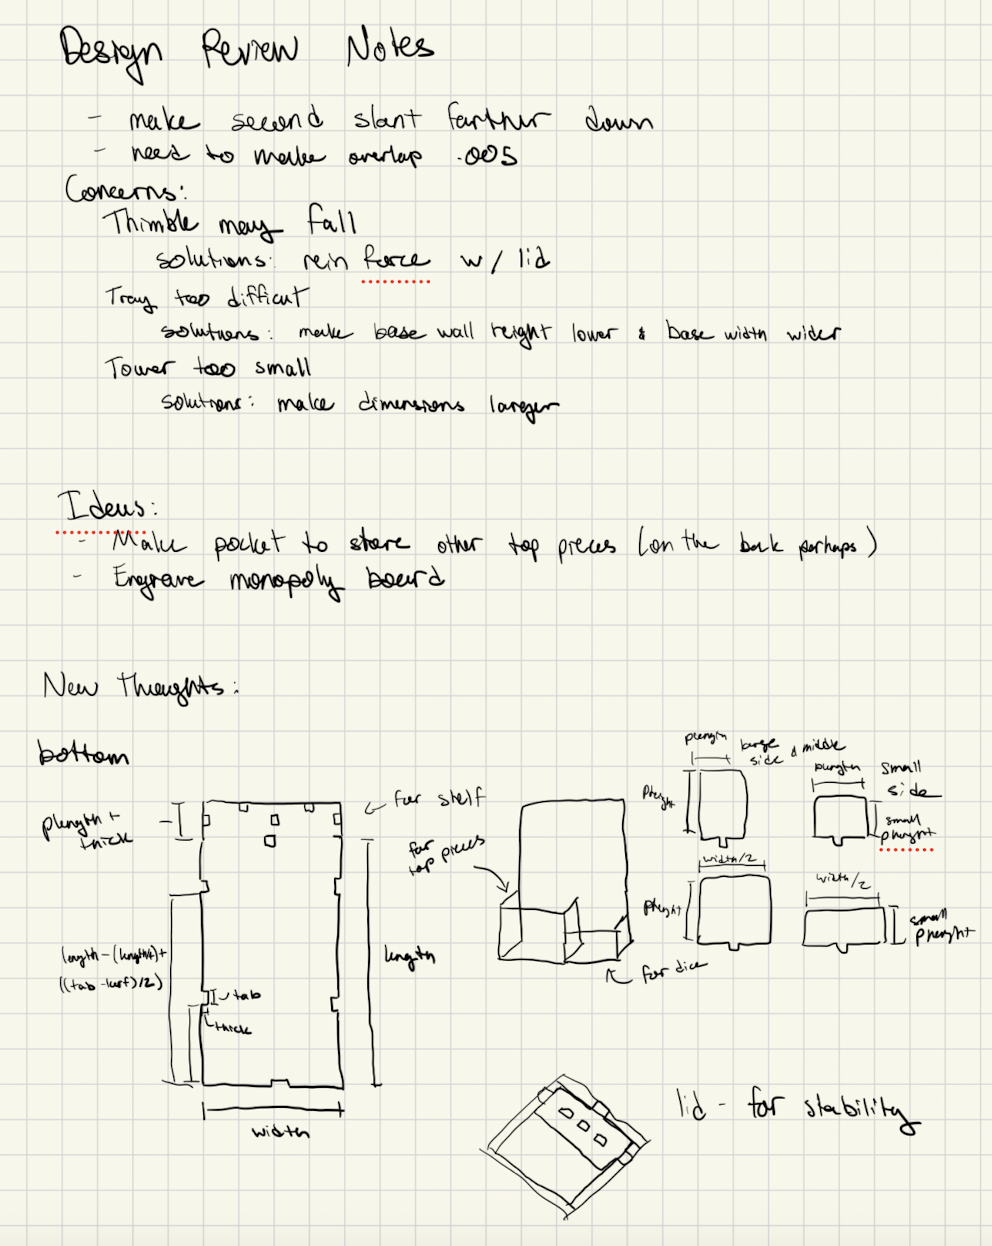 Design Review Notes
- make second slant farther down
- need to make overlap .005
Concerns:
Thimble may fall
solutions: rein force w/ lid
Tray too difficut
solutions: make base wall height lower & base width wider
Tower too small
solutions: make dimensions larger
Ideas:
- Make pocket to store other top pieces (on the back perhaps)
- Engrave monopoly board
New Thoughts:
bottom
plength +
thick
for shelf
length - (length/4) +
((tab - kerf)/2)
tab
thick
length
width
for
top pieces
for dice
plength
large
side & middle
pheight
plength
small
side
small
pheight
width/2
pheight
width/2
small
pheight
lid - for stability